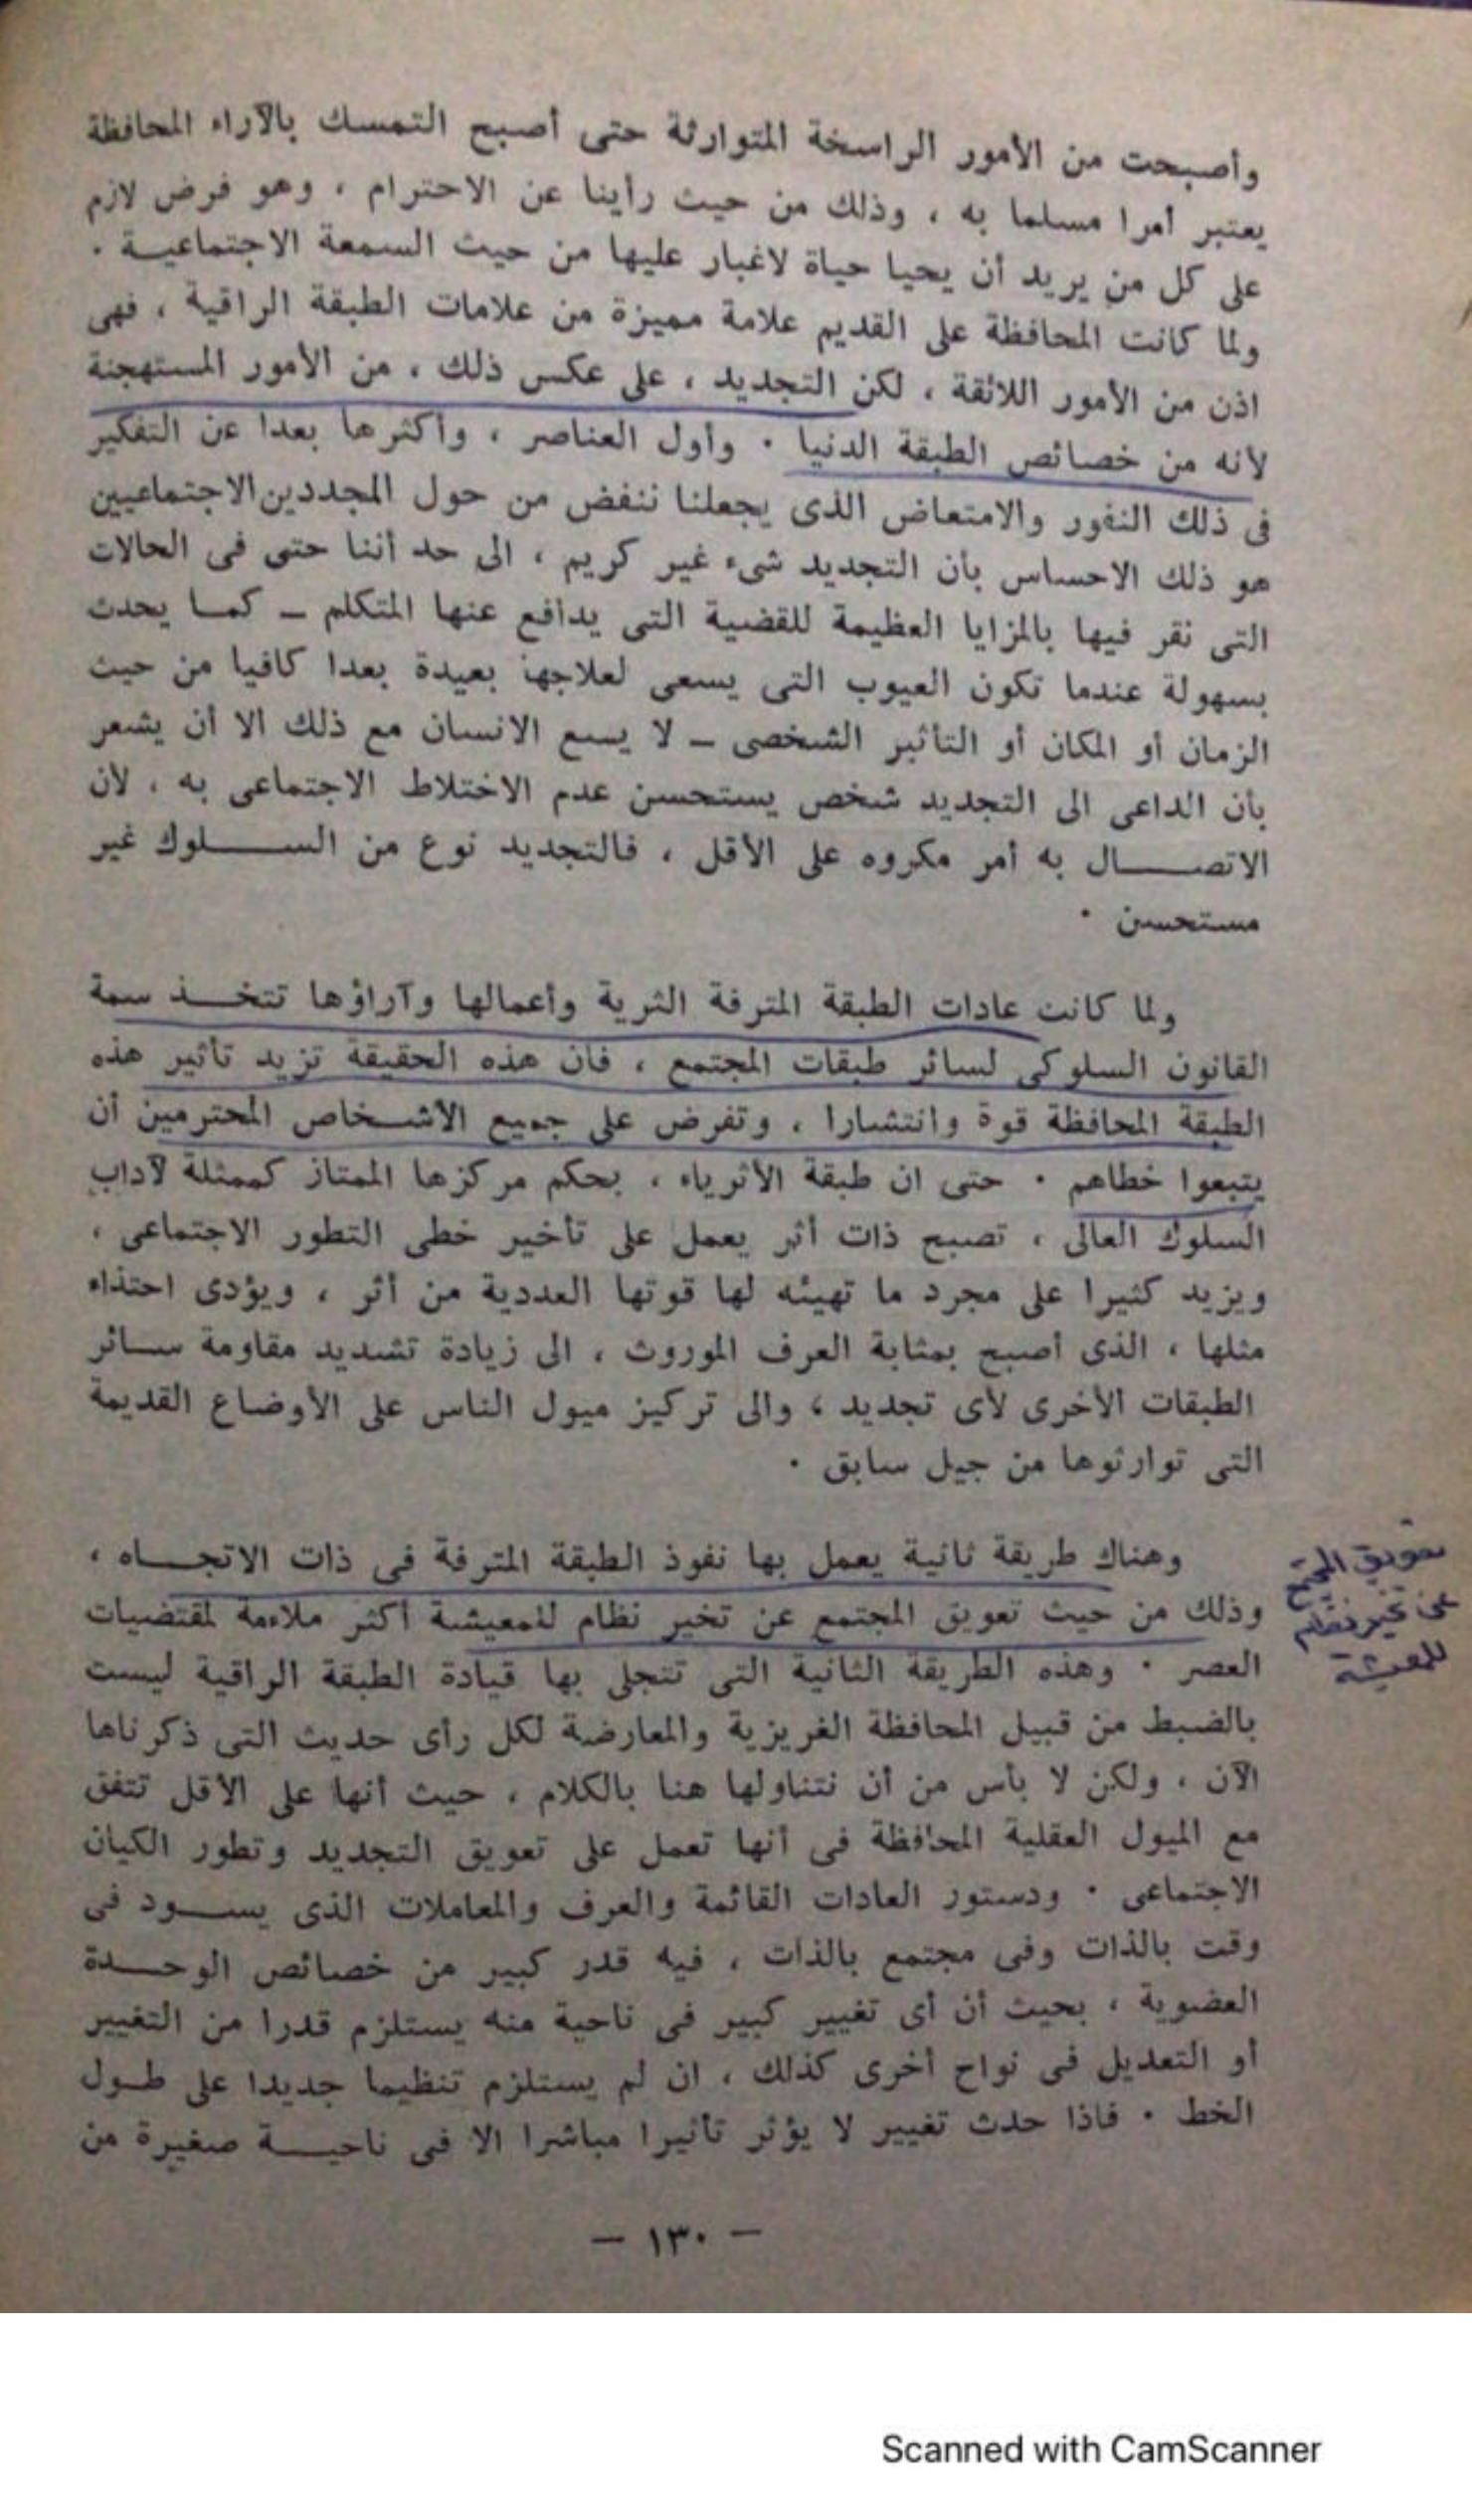 وأصبحت من الأمور الراسخة المتوارثة حتى أصبح التمسك بالآراء المحافظة
يعتبر أمرا مسلما به ، وذلك من حيث رأينا عن الاحترام ، وهو فرض لازم
على كل من يريد أن يحيا حياة لاغبار عليها من حيث السمعة الاجتماعيـة .
ولما كانت المحافظة على القديم علامة مميزة من علامات الطبقة الراقية ، فهى
اذن من الأمور اللائقة ، لكن التجديد ، على عكس ذلك ، من الأمور المستهجنة
لأنه من خصائص الطبقة الدنيا . وأول العناصر ، وأكثرها بعدا عن التفكير
فى ذلك النفور والامتعاض الذى يجعلنا ننفض من حول المجددين الاجتماعيين
هو ذلك الاحساس بأن التجديد شىء غير كريم ، الى حد أننا حتى فى الحالات
التى نقر فيها بالمزايا العظيمة للقضية التى يدافع عنها المتكلم – كمـا يحدث
بسهولة عندما تكون العيوب التى يسعى لعلاجها بعيدة بعدا كافيا من حيث
الزمان أو المكان أو التأثير الشخصى – لا يسع الانسان مع ذلك الا أن يشعر
بأن الداعى الى التجديد شخص يستحسن عدم الاختلاط الاجتماعى به ، لأن
الاتصـــال به أمر مكروه على الأقل ، فالتجديد نوع من الســـلوك غير
مستحسن .
ولما كانت عادات الطبقة المترفة الثرية وأعمالها وآراؤها تتخـذ سمة
القانون السلوكى لسائر طبقات المجتمع ، فان هذه الحقيقة تزيد تأثير هذه
الطبقة المحافظة قوة وانتشارا ، وتفرض على جميع الأشـخاص المحترمين أن
يتبعوا خطاهم . حتى ان طبقة الأثرياء ، بحكم مركزها الممتاز كممثلة لآداب
السلوك العالى ، تصبح ذات أثر يعمل على تأخير خطى التطور الاجتماعى ،
ويزيد كثيرا على مجرد ما تهيئه لها قوتها العددية من أثر ، ويؤدى احتذاء
مثلها ، الذى أصبح بمثابة العرف الموروث ، الى زيادة تشديد مقاومة سـائر
الطبقات الأخرى لأى تجديد ، والى تركيز ميول الناس على الأوضاع القديمة
التى توارثوها من جيل سابق .
وهناك طريقة ثانية يعمل بها نفوذ الطبقة المترفة فى ذات الاتجـاه ،
وذلك من حيث تعويق المجتمع عن تخير نظام للمعيشة أكثر ملاءمة لمقتضيات
العصر . وهذه الطريقة الثانية التى تتجلى بها قيادة الطبقة الراقية ليست
بالضبط من قبيل المحافظة الغريزية والمعارضة لكل رأى حديث التى ذكرناها
الآن ، ولكن لا بأس من أن نتناولها هنا بالكلام ، حيث أنها على الأقل تتفق
مع الميول العقلية المحافظة فى أنها تعمل على تعويق التجديد وتطور الكيان
الاجتماعى . ودستور العادات القائمة والعرف والمعاملات الذى يســود فى
وقت بالذات وفى مجتمع بالذات ، فيه قدر كبير من خصائص الوحـدة
العضوية ، بحيث أن أى تغيير كبير فى ناحية منه يستلزم قدرا من التغيير
أو التعديل فى نواح أخرى كذلك ، ان لم يستلزم تنظيما جديدا على طـول
الخط . فاذا حدث تغيير لا يؤثر تأثيرا مباشرا الا فى ناحيـة صغيرة من
تعويق المجتمع
عن تخير نظام
للمعيشة
– ١٣٠ –
Scanned with CamScanner